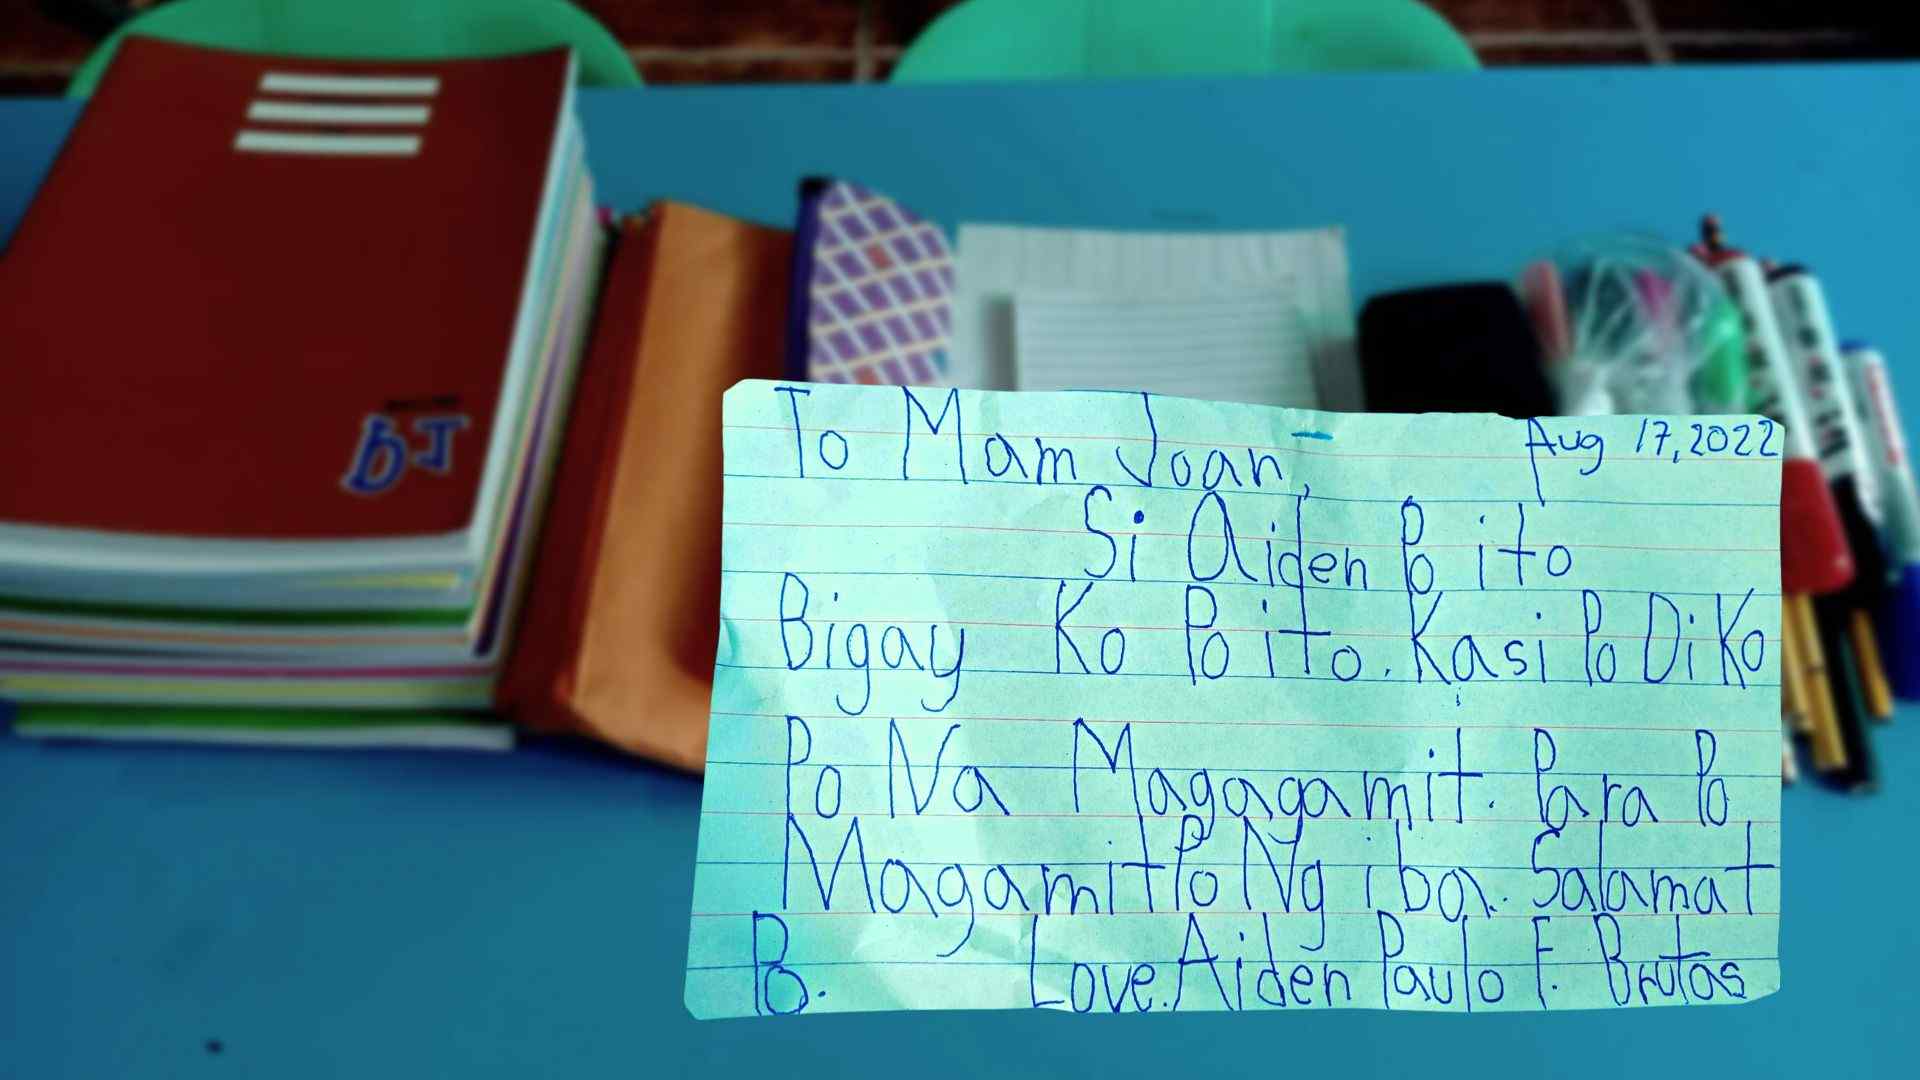 To Mam Joan,
Aug 17, 2022
Si Aiden Po ito
Bigay Ko Po ito. Kasi Po Di Ko
Po Na Magagamit. Para Po
Magamit Po Ng iba. Salamat
Po. Love. Aiden Paulo F. Brutas